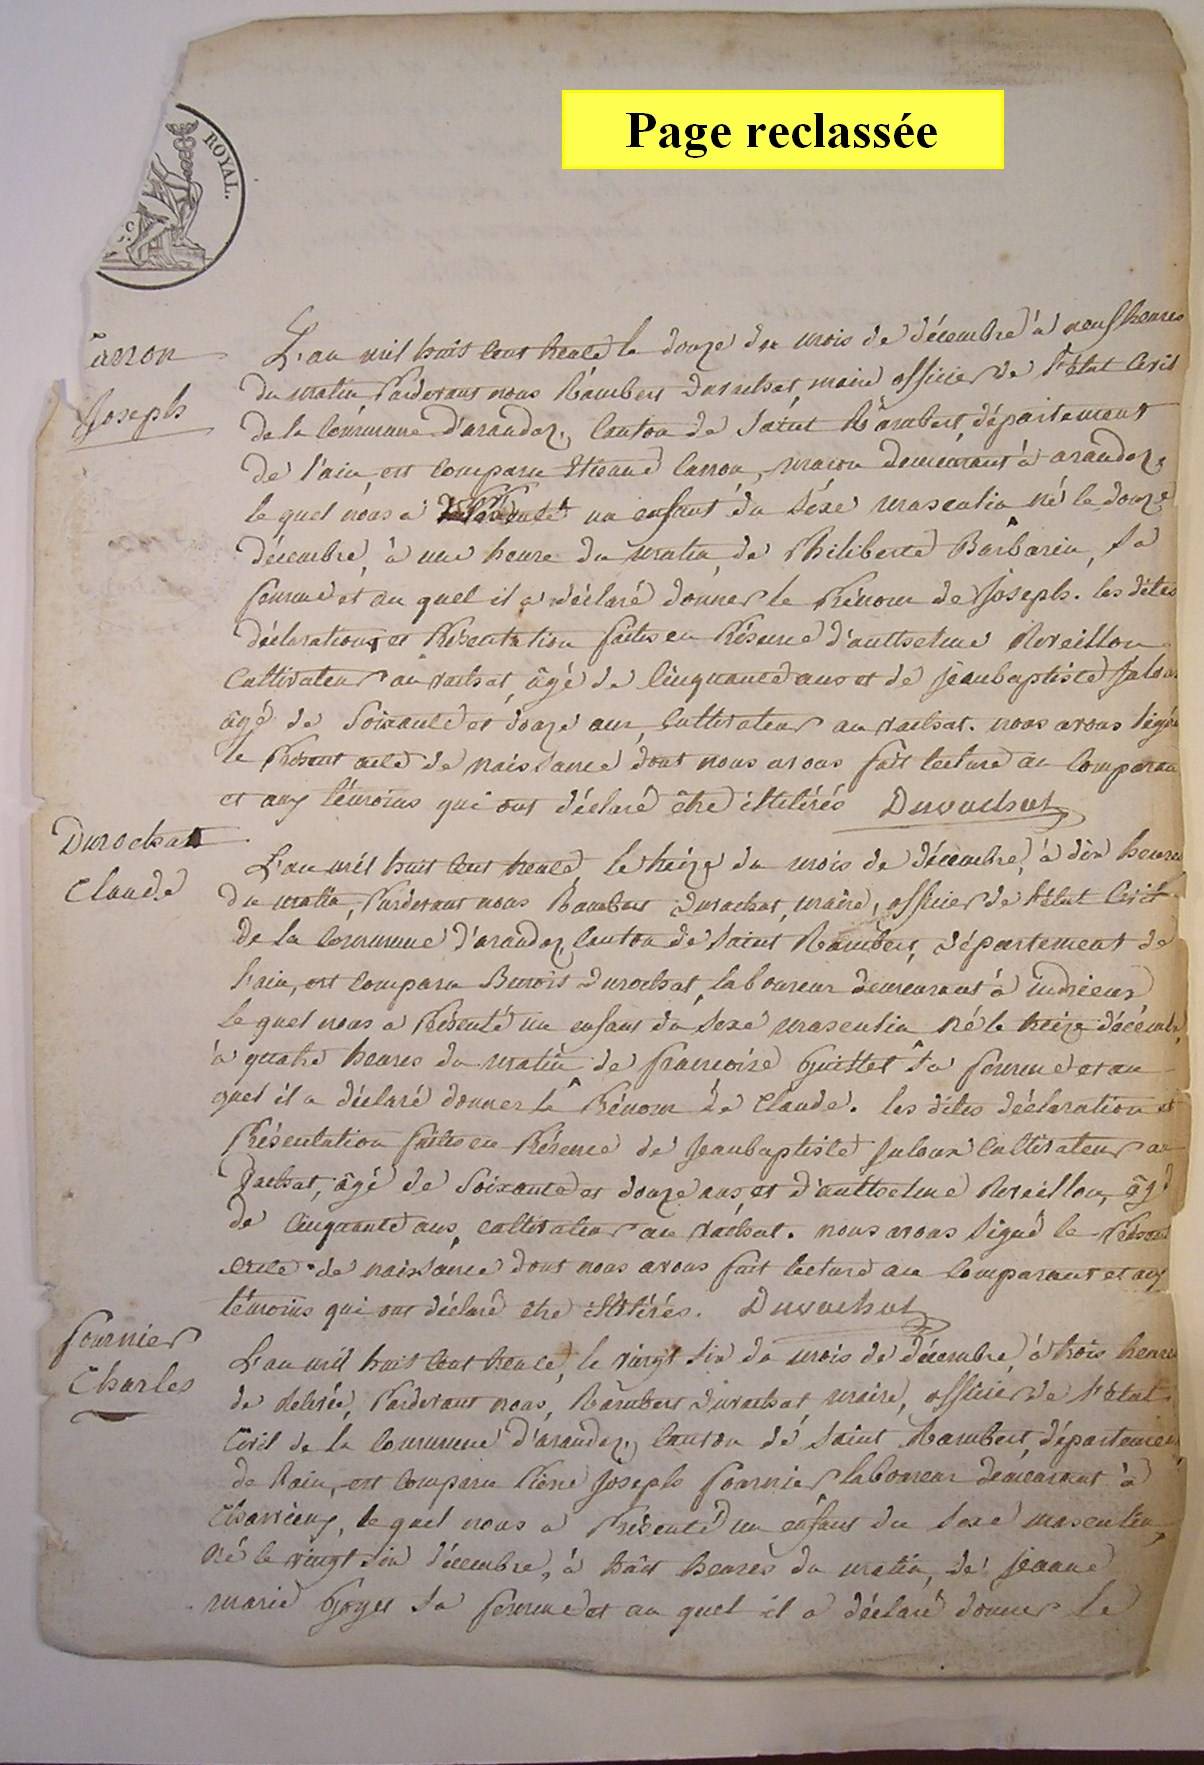 Page reclassée
ROYAL.
Carron
Joseph
L'an mil huit cent trente le douze du mois de décembre à neuf heures
du matin, Pardevant nous Rambert Durochat, maire officier de l'état Civil
de la Commune d'arandaz, Canton de Saint Rambert, département
de l'ain, est comparu Etienne Carron, maçon demeurant à arandaz,
le quel nous a Présenté un enfant du Séxe masculin né le douze
décembre, à une heure du matin, de Philiberte Barbarin, Sa
femme et au quel il a déclaré donner le Prénom de Joseph. les dites
déclaration, et Présentation faites en Présence d'anthselme Reveillon
Cultivateur au vachat, âgé de Cinquante ans et de jeanbaptiste Juloux
âgé de Soixante et douze ans, Cultivateur au vachat. nous avons Signé
le Présent acte de naissance dont nous avons fait lecture au Comparant
et aux témoins qui ont déclaré être illitérés Durochat
Durochat
Claude
L'an mil huit cent trente, le treize du mois de décembre, à dix heures
du matin, Pardevant nous Rambert Durochat, maire, officier de l'état Civil
de la Commune d'arandaz, Canton de Saint Rambert, département de
l'ain, est comparu Benoit Durochat, laboureur demeurant à indrieux
le quel nous a Présenté un enfant du Sexe masculin né le treize décembre
à quatre heures du matin de françoise Guillet Sa femme et au
quel il a déclaré donner le Prénom de Claude. les dites déclaration et
Présentation faites en Présence de Jeanbaptiste Juloux Cultivateur au
vachat, âgé de Soixante et douze ans, et d'anthselme Reveillon, âgé
de Cinquante ans, cultivateur au vachat. nous avons Signé le Présent
acte de naissance dont nous avons fait lecture au Comparant et aux
témoins qui ont déclaré etre illitérés. Durochat
fournier
Charles
L'an mil huit cent trente, le vingt Six du mois de décembre, à trois heures
de relevée, Pardevant nous, Rambert Durochat, maire, officier de l'état
Civil de la Commune d'arandaz, Canton de Saint Rambert, département
de l'ain, est comparu Pierre Joseph fournier laboureur demeurant à
Charvieux, le quel nous a Présenté un enfant du Sexe masculin,
né le vingt Six décembre, à huit heures du matin, de jeanne
marie Goyet Sa femme et au quel il a déclaré donner le